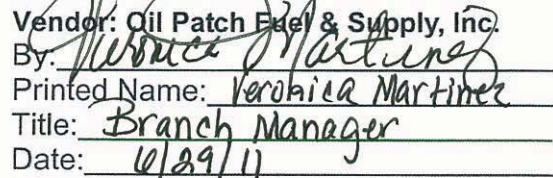 Vendor: Oil Patch Fuel & Supply, Inc.
By: Veronica Martinez
Printed Name: Veronica Martinez
Title: Branch Manager
Date: 6/29/11